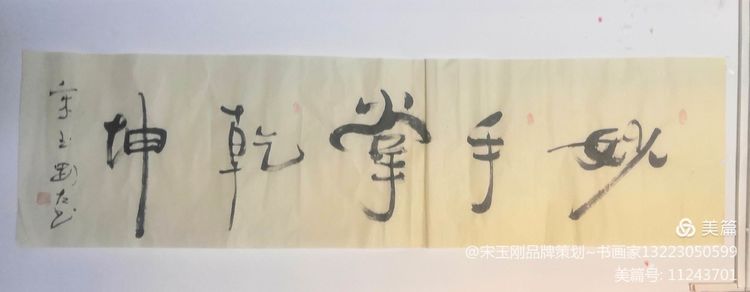 妙手掌乾坤
宋玉刚左书
美篇
@宋玉刚品牌策划~书画家13223050599
美篇号: 11243701